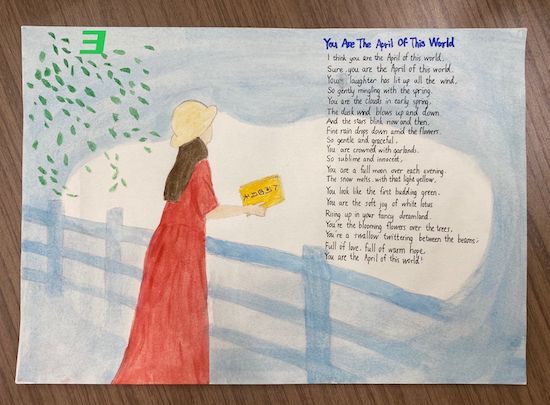 E
You Are The April Of This World
I think you are the April of this world,
Sure, you are the April of this world.
Your laughter has lit up all the wind,
So gently mingling with the spring.
You are the clouds in early spring,
The dusk wind blows up and down
And the stars blink now and then,
Fine rain drops down amid the flowers.
So gentle and graceful,
You are crowned with garlands.
So sublime and innocent,
You are a full moon over each evening.
The snow melts, with that light yellow,
You look like the first budding green.
You are the soft joy of white lotus
Rising up in your fancy dreamland.
You're the blooming flowers over the trees,
You're a swallow twittering between the beams;
Full of love, full of warm hope,
You are the April of this world!